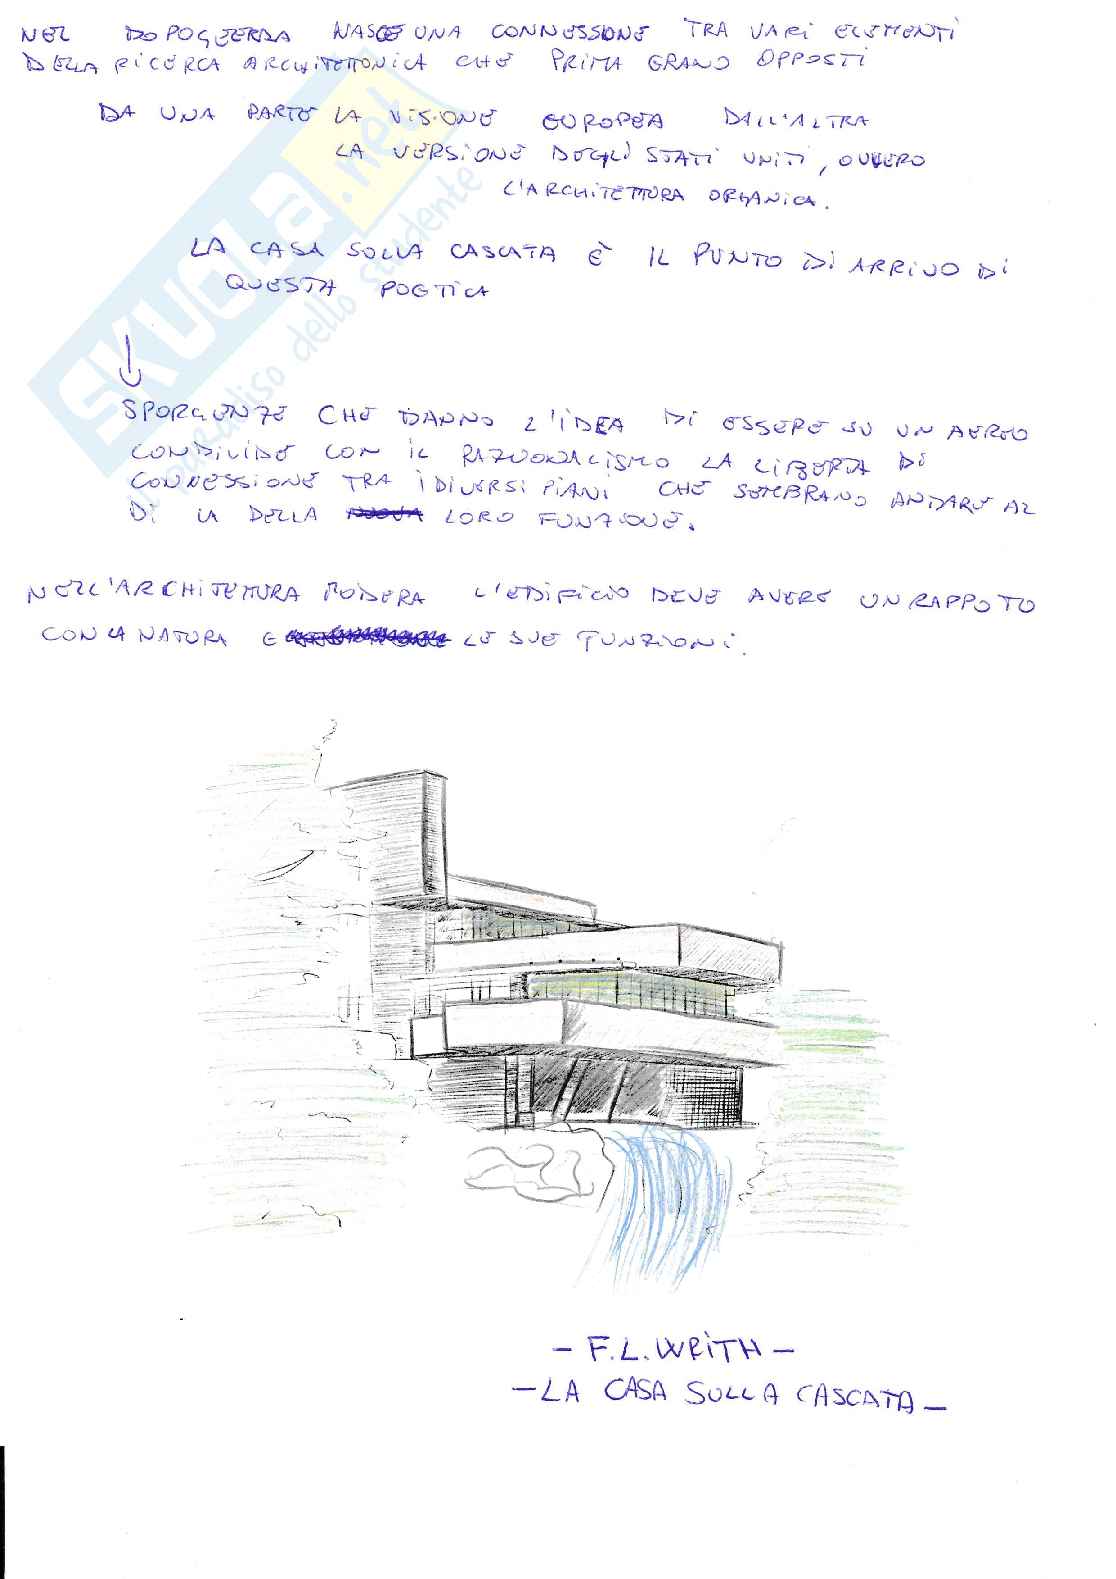 NEL DOPOGUERRA NASCE UNA CONNESSIONE TRA VARI ELEMENTI
DELLA RICERCA ARCHITETTONICA CHE PRIMA ERANO OPPOSTI
DA UNA PARTE LA VISIONE EUROPEA DALL'ALTRA
LA VERSIONE DEGLI STATI UNITI, OVVERO
L'ARCHITETTURA ORGANICA.
LA CASA SULLA CASCATA È IL PUNTO DI ARRIVO DI
QUESTA POETICA
SPORGENZE CHE DANNO L'IDEA DI ESSERE SU UN AEREO
CONDIVIDE CON IL RAZIONALISMO LA LIBERTA DI
CONNESSIONE TRA I DIVERSI PIANI CHE SEMBRANO ANDARE AL
DI LA DELLA LORO FUNZIONE.
NELL'ARCHITETTURA MODERA L'EDIFICIO DEVE AVERE UN RAPPOTO
CON LA NATURA E LE SUE FUNZIONI.
- F.L. WRITH -
- LA CASA SULLA CASCATA -
SKUOLA.net
il paradiso dello studente